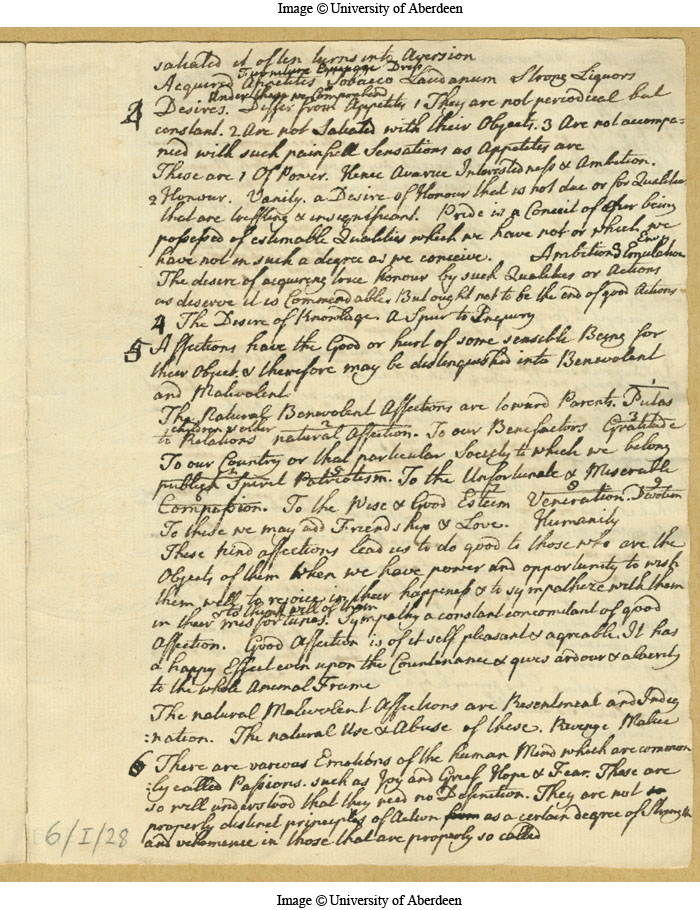 Image © University of Aberdeen
satiated it often turns into Aversion
Furniture Equipage Dress
Acquired Appetites Tobacco Laudanum Strong Liquors
Under these we Comprehend
2 Desires. Differ from Appetites 1 They are not periodical but
constant. 2 Are not Satiated with their Objects. 3 Are not accompa=
nied with such painfull Sensations as Appetites are
These are 1 Of Power. Hence Avarice Interestedness & Ambition.
2 Honour. Vanity. a Desire of Honour that is not due or for Qualities
that are trifling & insignificant. Pride is a Conceit of our being
possessed of estimable Qualities which we have not or which we
have not in such a degree as we conceive. Ambition 3 Emulation Envy
The desire of acquiring true honour by such Qualities or Actions
as deserve it is Commendable. But ought not to be the end of good Actions
4 The Desire of Knowlege. A Spur to Enquiry
5 Affections have the Good or hurt of some sensible Being for
their Object, & therefore may be distinguished into Benevolent
and Malevolent.
The Natural Benevolent Affections are toward Parents. Pietas 1
children & other
to Relations natural Affection. 2 To our Benefactors Gratitude 3
To our Country or that particular Society to which we belong
publick Spirit Patriotism. 5 To the Unfortunate & Miserable
Compassion. 6 To the Wise & Good Esteem 7 Veneration. 8 Devotion 9
To these we may add Friendship & Love. Humanity
These kind affections lead us to do good to those who are the
Objects of them when we have power and opportunity to wish
them well to rejoice in their happiness & to sympathize with them
to think well of them
in their misfortunes. Sympathy a constant concomitant of good
Affection. Good Affection is of it self pleasant & agreable. It has
a happy Effect even upon the Countenance & gives ardour & alacrity
to the whole Animal Frame
The natural Malevolent Affections are Resentment and Indig
=nation. The natural Use & Abuse of these. Revenge Malice
6 There are various Emotions of the human Mind which are common
=ly called Passions. such as Joy and Grief Hope & Fear. These are
so well understood that they need no Definition. They are not
properly distinct principles of Action from as a certain degree of Strength
and vehemence in those that are properly so called
6/I/28
Image © University of Aberdeen